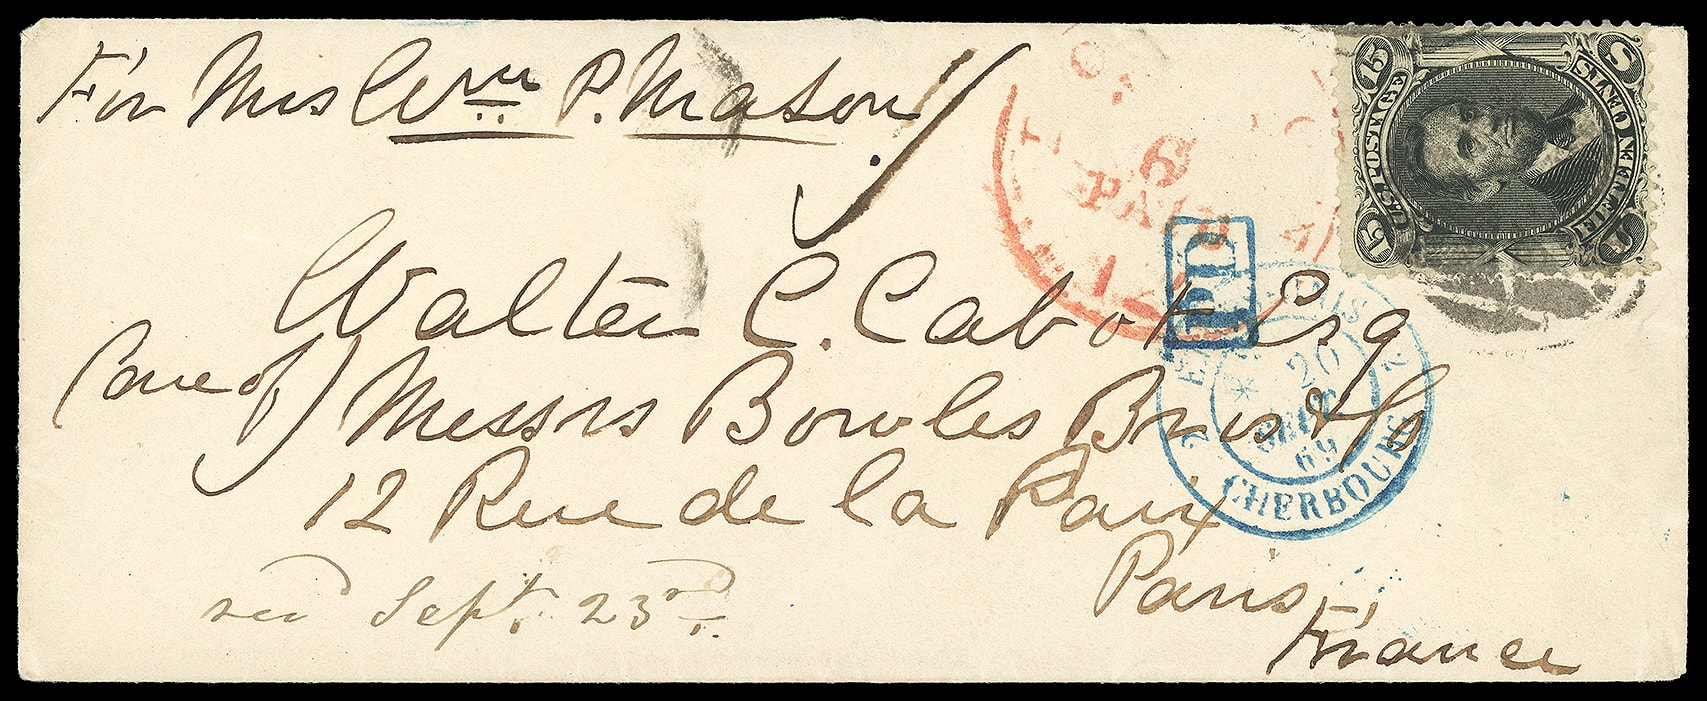 For Mrs Wm P. Mason
Walter C. Cabot Esq
Care of Messrs Bowles Bros & Co
12 Rue de la Paix
Paris
France
recd Sept. 23rd
U.S. POSTAGE
15
FIFTEEN CENTS
U S
6
PAID
12
PD
20
SEPT
69
2 2
CHERBOURG